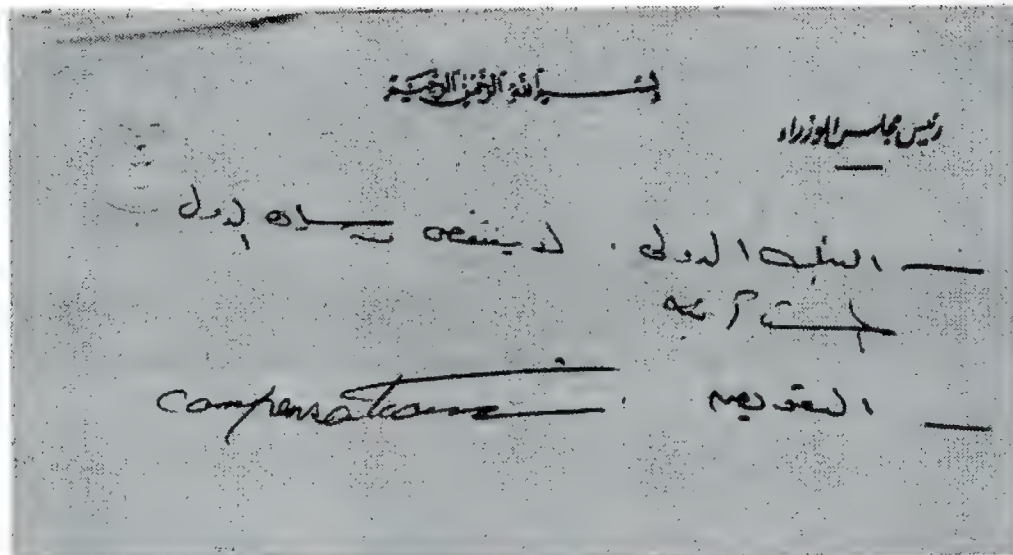 بسم الله الرحمن الرحيم
رئيس مجلس الوزراء
— البنك الدولى . لا ينقص سيادة الدول
— التعويض compensations